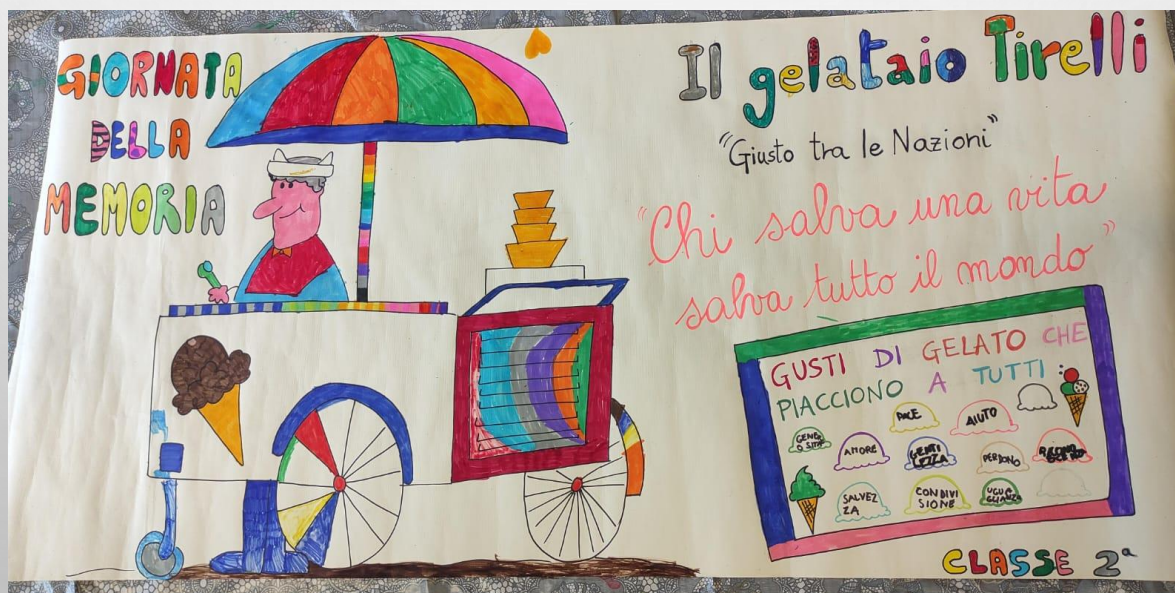 GIORNATA
DELLA
MEMORIA
Il gelataio Tirelli
"Giusto tra le Nazioni"
"Chi salva una vita
salva tutto il mondo"
GUSTI DI GELATO CHE
PIACCIONO A TUTTI
PACE
AIUTO
GENER
OSITÀ
AMORE
GENTI
LEZZA
PERDONO
SALVEZ
ZA
CONDIVI
SIONE
UGUA
GLIANZA
CLASSE 2ª